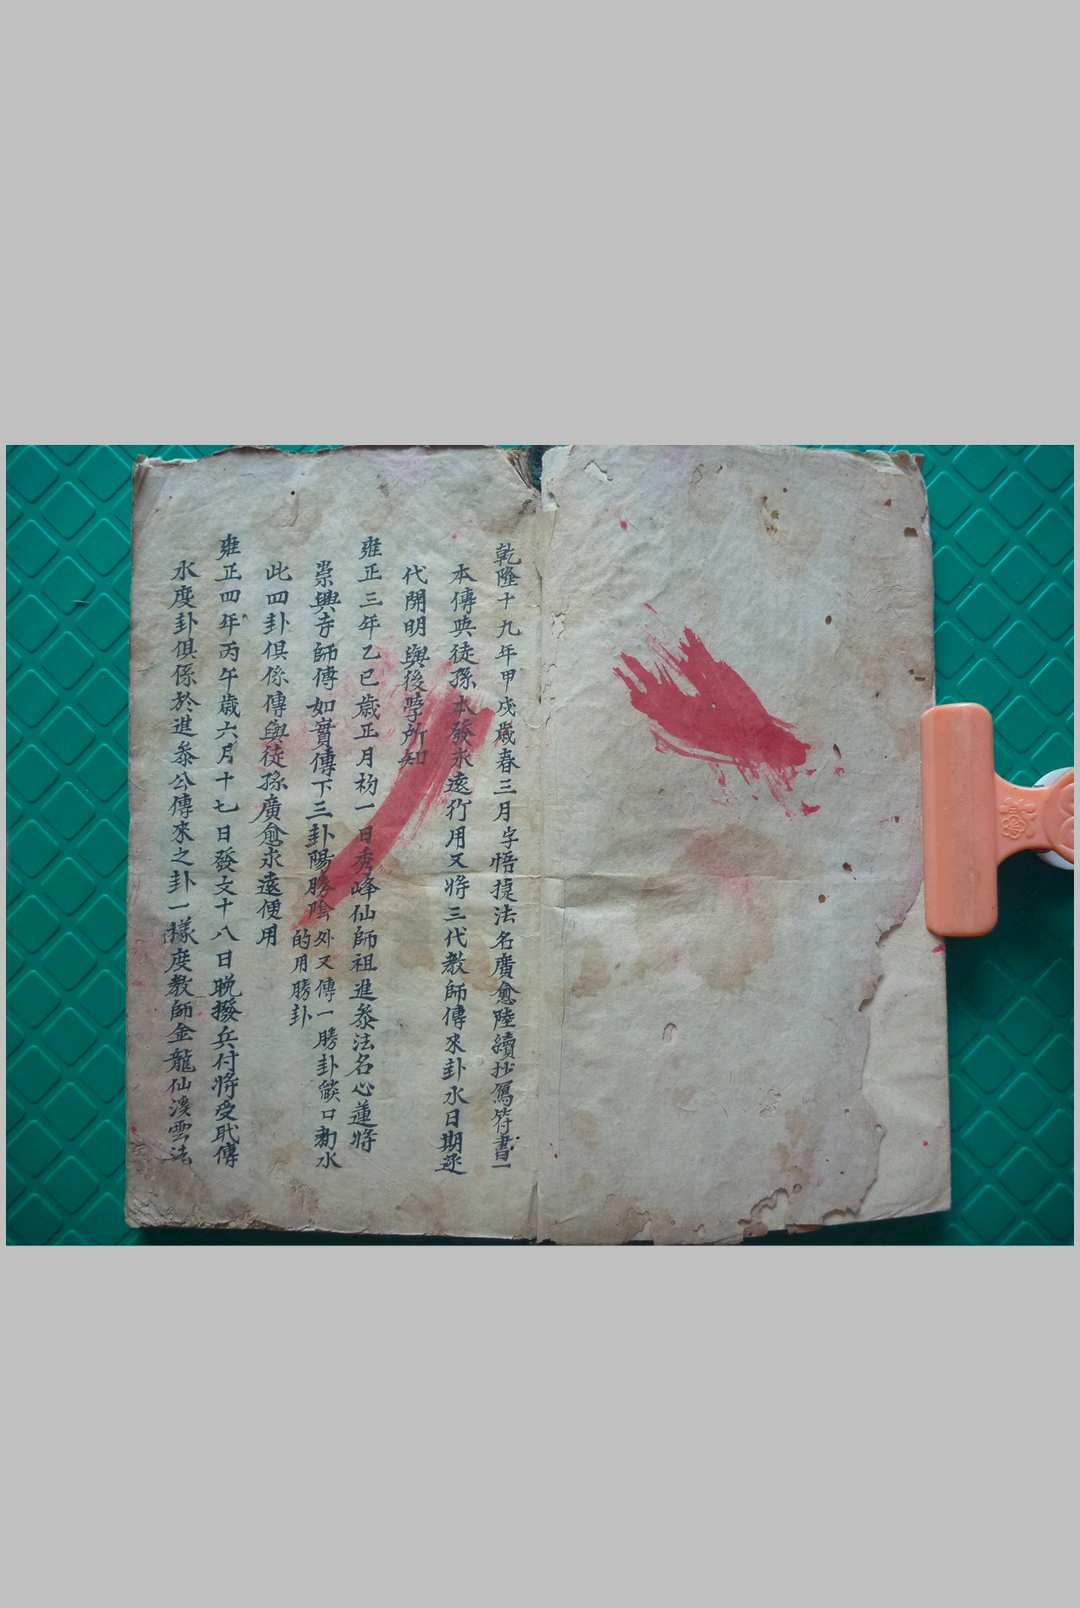 乾隆十九年甲戌歲春三月字悟㨗法名廣愈陸續抄寫符書一
本傳與徒孫本發永遠行用又將三代教師傳來卦水日期逐
代開明與後學所知
雍正三年乙巳歲正月初一日秀峰仙師祖進參法名心蓮將
崇興寺師傅如實傳下三卦陽勝陰外又傳一勝卦燄口勅水
的用勝卦
此四卦俱係傳與徒孫廣愈永遠便用
雍正四年丙午歲六月十七日發文十八日晚撥兵付將受戒傳
水度卦俱係於進參公傳來之卦一樣度教師金龍仙溪雲法